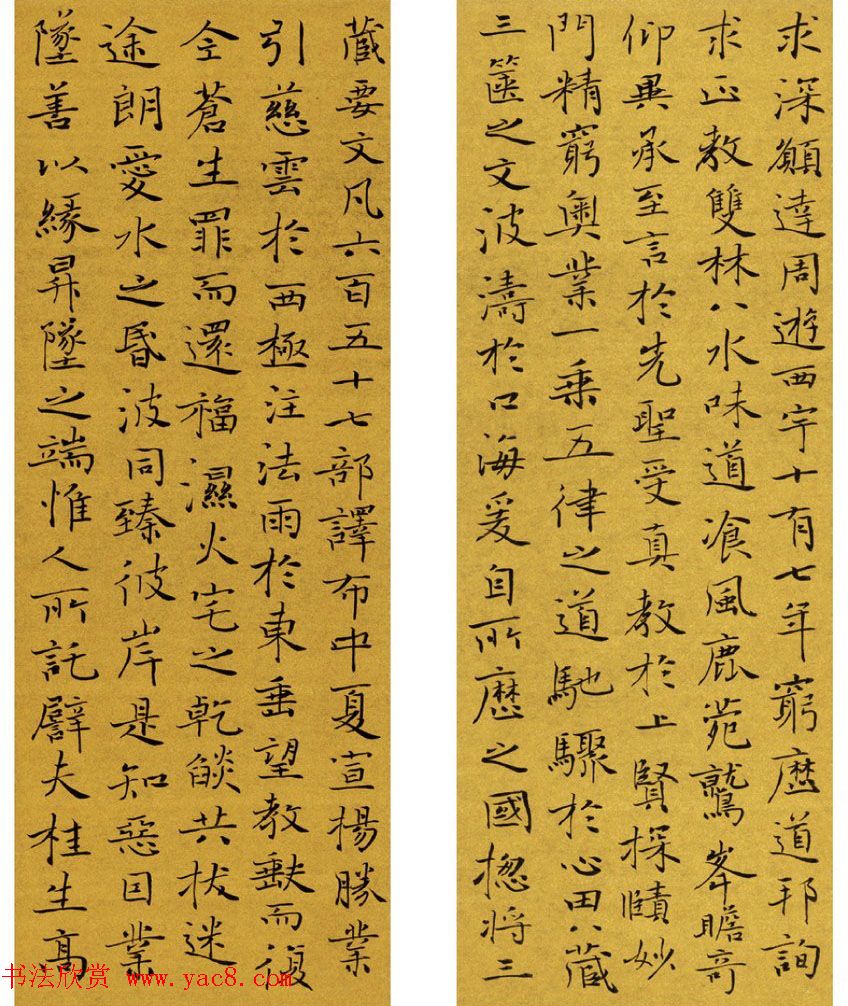 求深願達周遊西宇十有七年窮歷道邦詢
求正教雙林八水味道飡風鹿菀鷲峯瞻奇
仰異承至言於先聖受真教於上賢探賾妙
門精窮奧業一乘五律之道馳驟於心田八藏
三篋之文波濤於口海爰自所歷之國揔將三
藏要文凡六百五十七部譯布中夏宣楊勝業
引慈雲於西極注法雨於東垂望教缺而復
全蒼生罪而還福濕火宅之乾燄共拔迷
途朗愛水之昬波同臻彼岸是知惡因業
墜善以緣昇墜之端惟人所託譬夫桂生高
书法欣赏 www.yac8.com